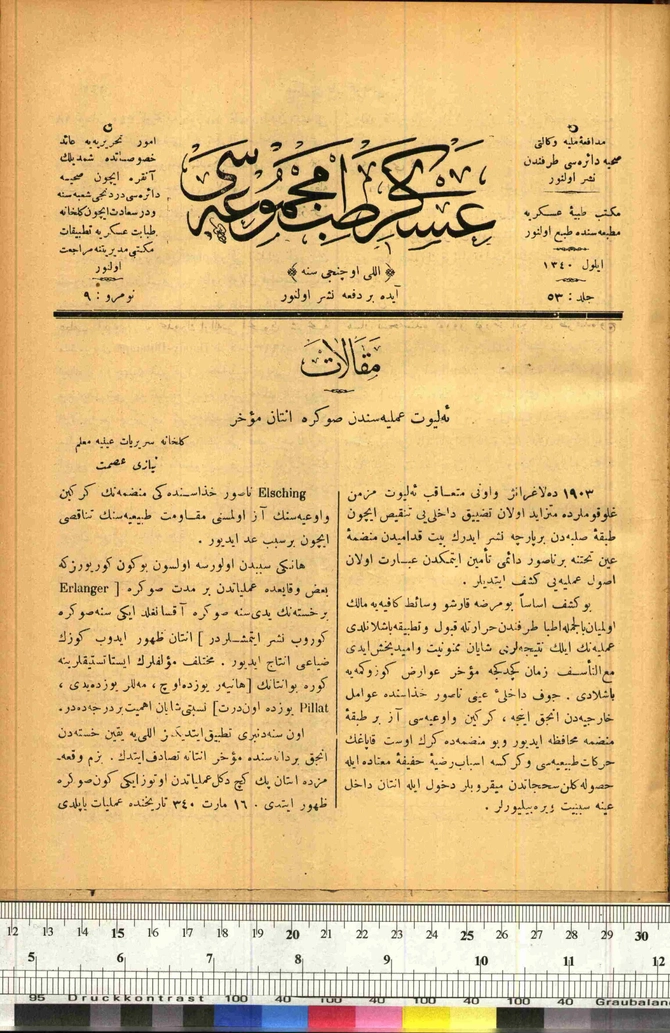 مدافعهٔ ملیه وکالتی
صحیه دائره‌سی طرفندن
نشر اولنور
مکتب طبیهٔ عسکریه
مطبعه‌سنده طبع اولنور
ایلول ١٣٤٠
جلد : ٥٣
عسکری طب مجموعه سی
﴿ اللی اوچنجی سنه ﴾
آیده بر دفعه نشر اولنور
امور تحریریه‌یه عائد
خصوصاتده شمدیلك
آنقره ایچون صحیه
دائره‌سی دردنجی شعبه‌سنه
و درسعادت ایچون كلخانه
طبابت عسکریه تطبیقات
مکتبی مدیریتنه مراجعت
اولنور
نومرو : ٩
مقالات
ئه‌لیوت عملیه‌سندن صوکره انتان مؤخر
كلخانه سریریات عینیه معلم
نیازی عصمت
١٩٠٣ ده لاغرانژ واونی متعاقب ئه‌لیوت مزمن
غلوقوملرده متزاید اولان تضییق داخلی‌یی تنقیص ایچون
طبقهٔ صلبه‌دن بر پارچه نشر ایدرك بیت قدامیدن منضمهٔ
عین تحتنه بر ناصور دائمی تأمین ایتمکدن عبارت اولان
اصول عملیه‌یی کشف ایتدیلر .
بو کشف اساساً بو مرضه قارشو وسائط کافیه‌یه مالك
اولمیان بالجمله اطبا طرفندن حرارتله قبول و تطبیقه باشلانلدی
عملیه‌نك ایلك نتیجه‌لری شایان ممنونیت وامیدبخش ایدی
مع‌التأسف زمان کچدکجه مؤخر عوارض کوزوکمه‌یه
باشلادی . جوف داخلیٔ عینی ناصور خذاسنده عوامل
خارجیه‌دن انجق اینجه ، کرکین واوعیه‌سی آز بر طبقهٔ
منضمه محافظه ایدیور وبو منضمه‌ده کرك اوست قاپاغك
حرکات طبیعیه‌سی و کرکسه اسباب رضیهٔ خفیفهٔ معتاده ایله
حصوله کلن سحجاتدن میقروبلر دخول ایله انتان داخل
عینه سببیت ویره‌بیلیورلر .
Elsching ناصور خذاسنده‌کی منضمه‌نك کرکین
واوعیه‌سنك آز اولمسنی مقاومت طبیعیه‌سنك تناقصی
ایچون بر سبب عد ایدیور .
هانکی سببدن اولورسه اولسون بوکون کوریورزکه
بعض وقایعده عملیاتدن بر مدت صوکره [ Erlanger
بر خسته‌نك یدی سنه صوکره آقسانفلد ایکی سنه صوکره
کوروب نشر ایتمشلردر ] انتان ظهور ایدوب کوزك
ضیاعی انتاج ایدیور . مختلف مؤلفلرك ایستاتستیقلرینه
کوره بو انتانك [ هانیه‌ر یوزده اوچ ، مه‌للر یوزده‌یدی ،
Pillat یوزده اون‌درت ] نسبتی شایان اهمیت بر درجه‌ده‌در.
اون سنه‌دنبری تطبیق ایتدیکمز اللی‌یه یقین خسته‌دن
انجق بر دانه‌سنده مؤخر انتانه تصادف ایتدك . بزم وقعه‌‌-
مزده انتان پك کیچ دکل عملیاتدن اوتوز ایکی کون صوکره
ظهور ایتدی . ١٦ مارت ٣٤٠ تاریخنده عملیات یاپلدی
12 13 14 15 16 17 18 19 20 21 22 23 24 25 26 27 28 29 30
5 6 7 8 9 10 11 12
95 Druckkontrast 100 40 100 40 100 40 100 40 Graubalan